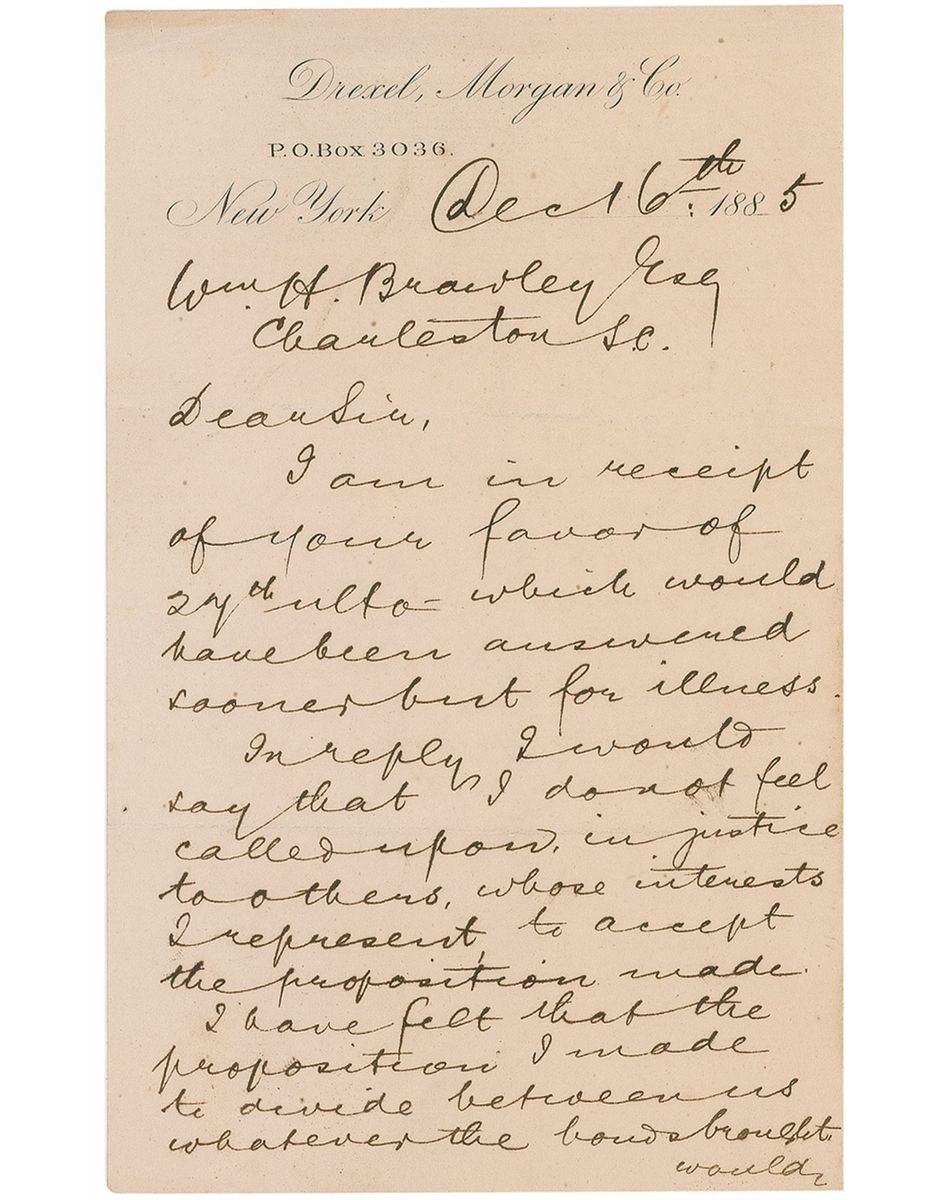 Drexel, Morgan & Co.
P.O. Box 3036.
New York Dec 16th. 1885
Wm. H. Brawley Esq
Charleston S.C.
Dear Sir,
I am in receipt
of your favor of
27th ulto - which would
have been answered
sooner but for illness.
In reply I would
say that I do not feel
called upon, in justice
to others, whose interests
I represent, to accept
the proposition made.
I have felt that the
proposition I made
to divide between us
whatever the bonds brought
would,